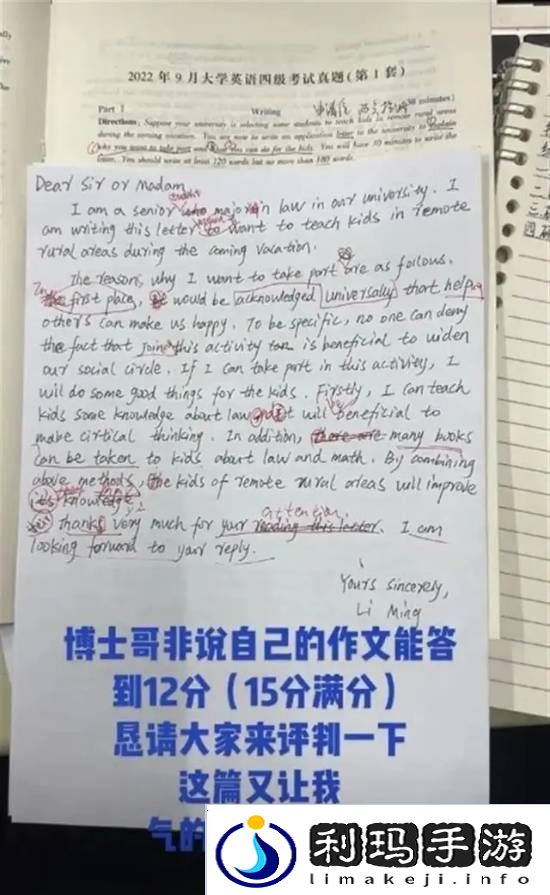 2022年9月大学英语四级考试真题(第1套)
Part I Writing (30 minutes)
Directions: Suppose your university is selecting some students to teach kids in remote rural areas
during the coming vacation. You are now to write an application letter to the university to explain
why you want to take part and what you can do for the kids. You will have 30 minutes to write the
letter. You should write at least 120 words but no more than 180 words.
Dear Sir or Madam
I am a senior who major in law in our university. I
am writing this letter to want to teach kids in remote
rural areas during the coming vacation.
The reasons why I want to take part are as follows.
The first place, would be acknowledged universally that helping
others can make us happy. To be specific, no one can deny
the fact that join this activity is beneficial to widen
our social circle. If I can take part in this activity, I
will do some good things for the kids. Firstly, I can teach
kids some knowledge about law and it will beneficial to
make cirtical thinking. In addition, there are many books
can be taken to kids about law and math. By combining
above methods, the kids of remote rural areas will improve
its knowledge.
attention
thanks very much for your reading this letter. I am
looking forward to your reply.
Yours sincerely,
Li Ming
博士哥非说自己的作文能答
到12分(15分满分)
恳请大家来评判一下
这篇又让我
气的
利玛手游
limakeji.info